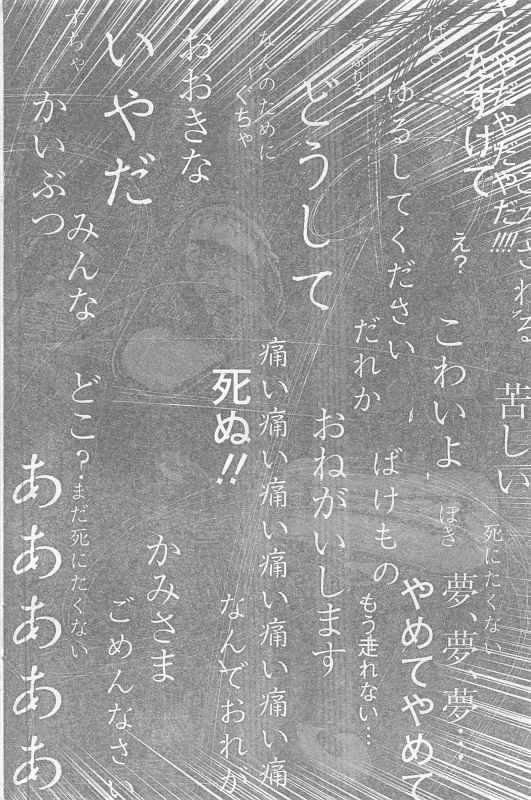 やだやだやだやだ!!!!
たすけて
え?
苦しい
死にたくない
ゆるしてください
こわいよ
ぼき
夢、夢、夢…
だれか
ばけもの
やめてやめて
もう走れない…
どうして
おねがいします
なんのために
ぐちゃ
痛い痛い痛い痛い痛い痛い痛
おおきな
死ぬ!!
なんでおれが
いやだ
かみさま
ごめんなさい
かいぶつ
みんな
どこ?
まだ死にたくない
ああああああ